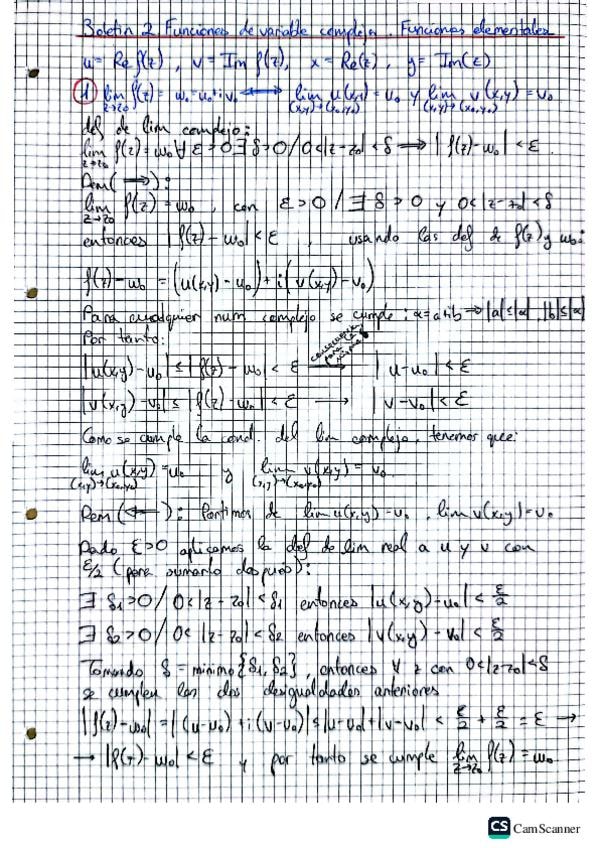 Boletín 2. Funciones de variable compleja. Funciones elementales
u = Re f(z), v = Im f(z), x = Re(z), y = Im(z)
1) lim z→z₀ f(z) = w₀ = u₀ + iv₀ ⟷ lim (x,y)→(x₀,y₀) u(x,y) = u₀ y lim (x,y)→(x₀,y₀) v(x,y) = v₀
def de lim complejo:
lim z→z₀ f(z) = w₀ ∀ ε > 0 ∃ δ > 0 / 0 < |z - z₀| < δ ⟹ |f(z) - w₀| < ε.
Dem (⟹):
lim z→z₀ f(z) = w₀, con ε > 0 / ∃ δ > 0 y 0 < |z - z₀| < δ
entonces |f(z) - w₀| < ε, usando las def de f(z) y w₀:
f(z) - w₀ = (u(x,y) - u₀) + i(v(x,y) - v₀)
Para cualquier num complejo se cumple: α = a + ib ⟹ |a| ≤ |α|, |b| ≤ |α|
Por tanto:
|u(x,y) - u₀| ≤ |f(z) - w₀| < ε ⟶ |u - u₀| < ε
|v(x,y) - v₀| ≤ |f(z) - w₀| < ε ⟶ |v - v₀| < ε
Como se cumple la cond. del lim complejo, tenemos que:
lim (x,y)→(x₀,y₀) u(x,y) = u₀ y lim (x,y)→(x₀,y₀) v(x,y) = v₀
Dem (⟸): Partimos de lim u(x,y) = u₀, lim v(x,y) = v₀
Dado ε > 0 aplicamos la def de lim real a u y v con
ε/2 (para sumarlo después):
∃ δ₁ > 0 / 0 < |z - z₀| < δ₁ entonces |u(x,y) - u₀| < ε/2
∃ δ₂ > 0 / 0 < |z - z₀| < δ₂ entonces |v(x,y) - v₀| < ε/2
Tomando δ = mínimo {δ₁, δ₂}, entonces ∀ z con 0 < |z - z₀| < δ
se cumplen las dos desigualdades anteriores
|f(z) - w₀| = |(u - u₀) + i(v - v₀)| ≤ |u - u₀| + |v - v₀| < ε/2 + ε/2 = ε →
→ |f(z) - w₀| < ε y por tanto se cumple lim z→z₀ f(z) = w₀
CS CamScanner